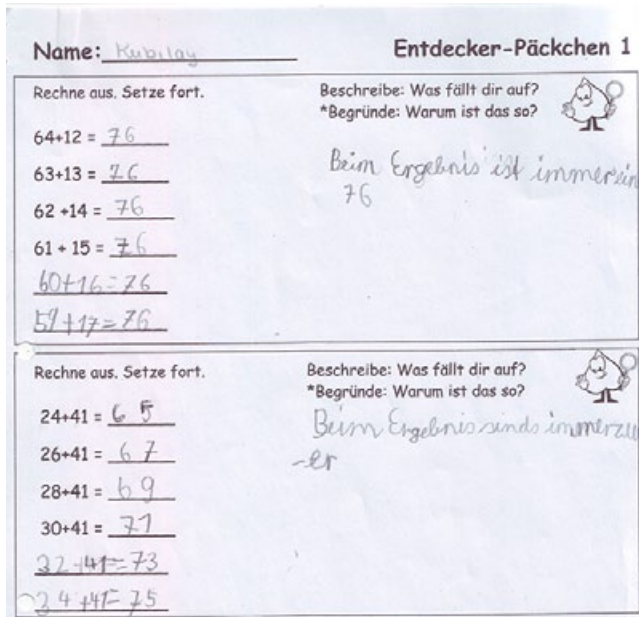 Name: Kubilay
Entdecker-Päckchen 1
Rechne aus. Setze fort.
64+12 = 76
63+13 = 76
62 +14 = 76
61 + 15 = 76
60+16=76
59+17=76
Beschreibe: Was fällt dir auf?
*Begründe: Warum ist das so?
Beim Ergebnis ist immer ein
76
Rechne aus. Setze fort.
24+41 = 65
26+41 = 67
28+41 = 69
30+41 = 71
32+41=73
34+41=75
Beschreibe: Was fällt dir auf?
*Begründe: Warum ist das so?
Beim Ergebnis sinds immer zw
-er